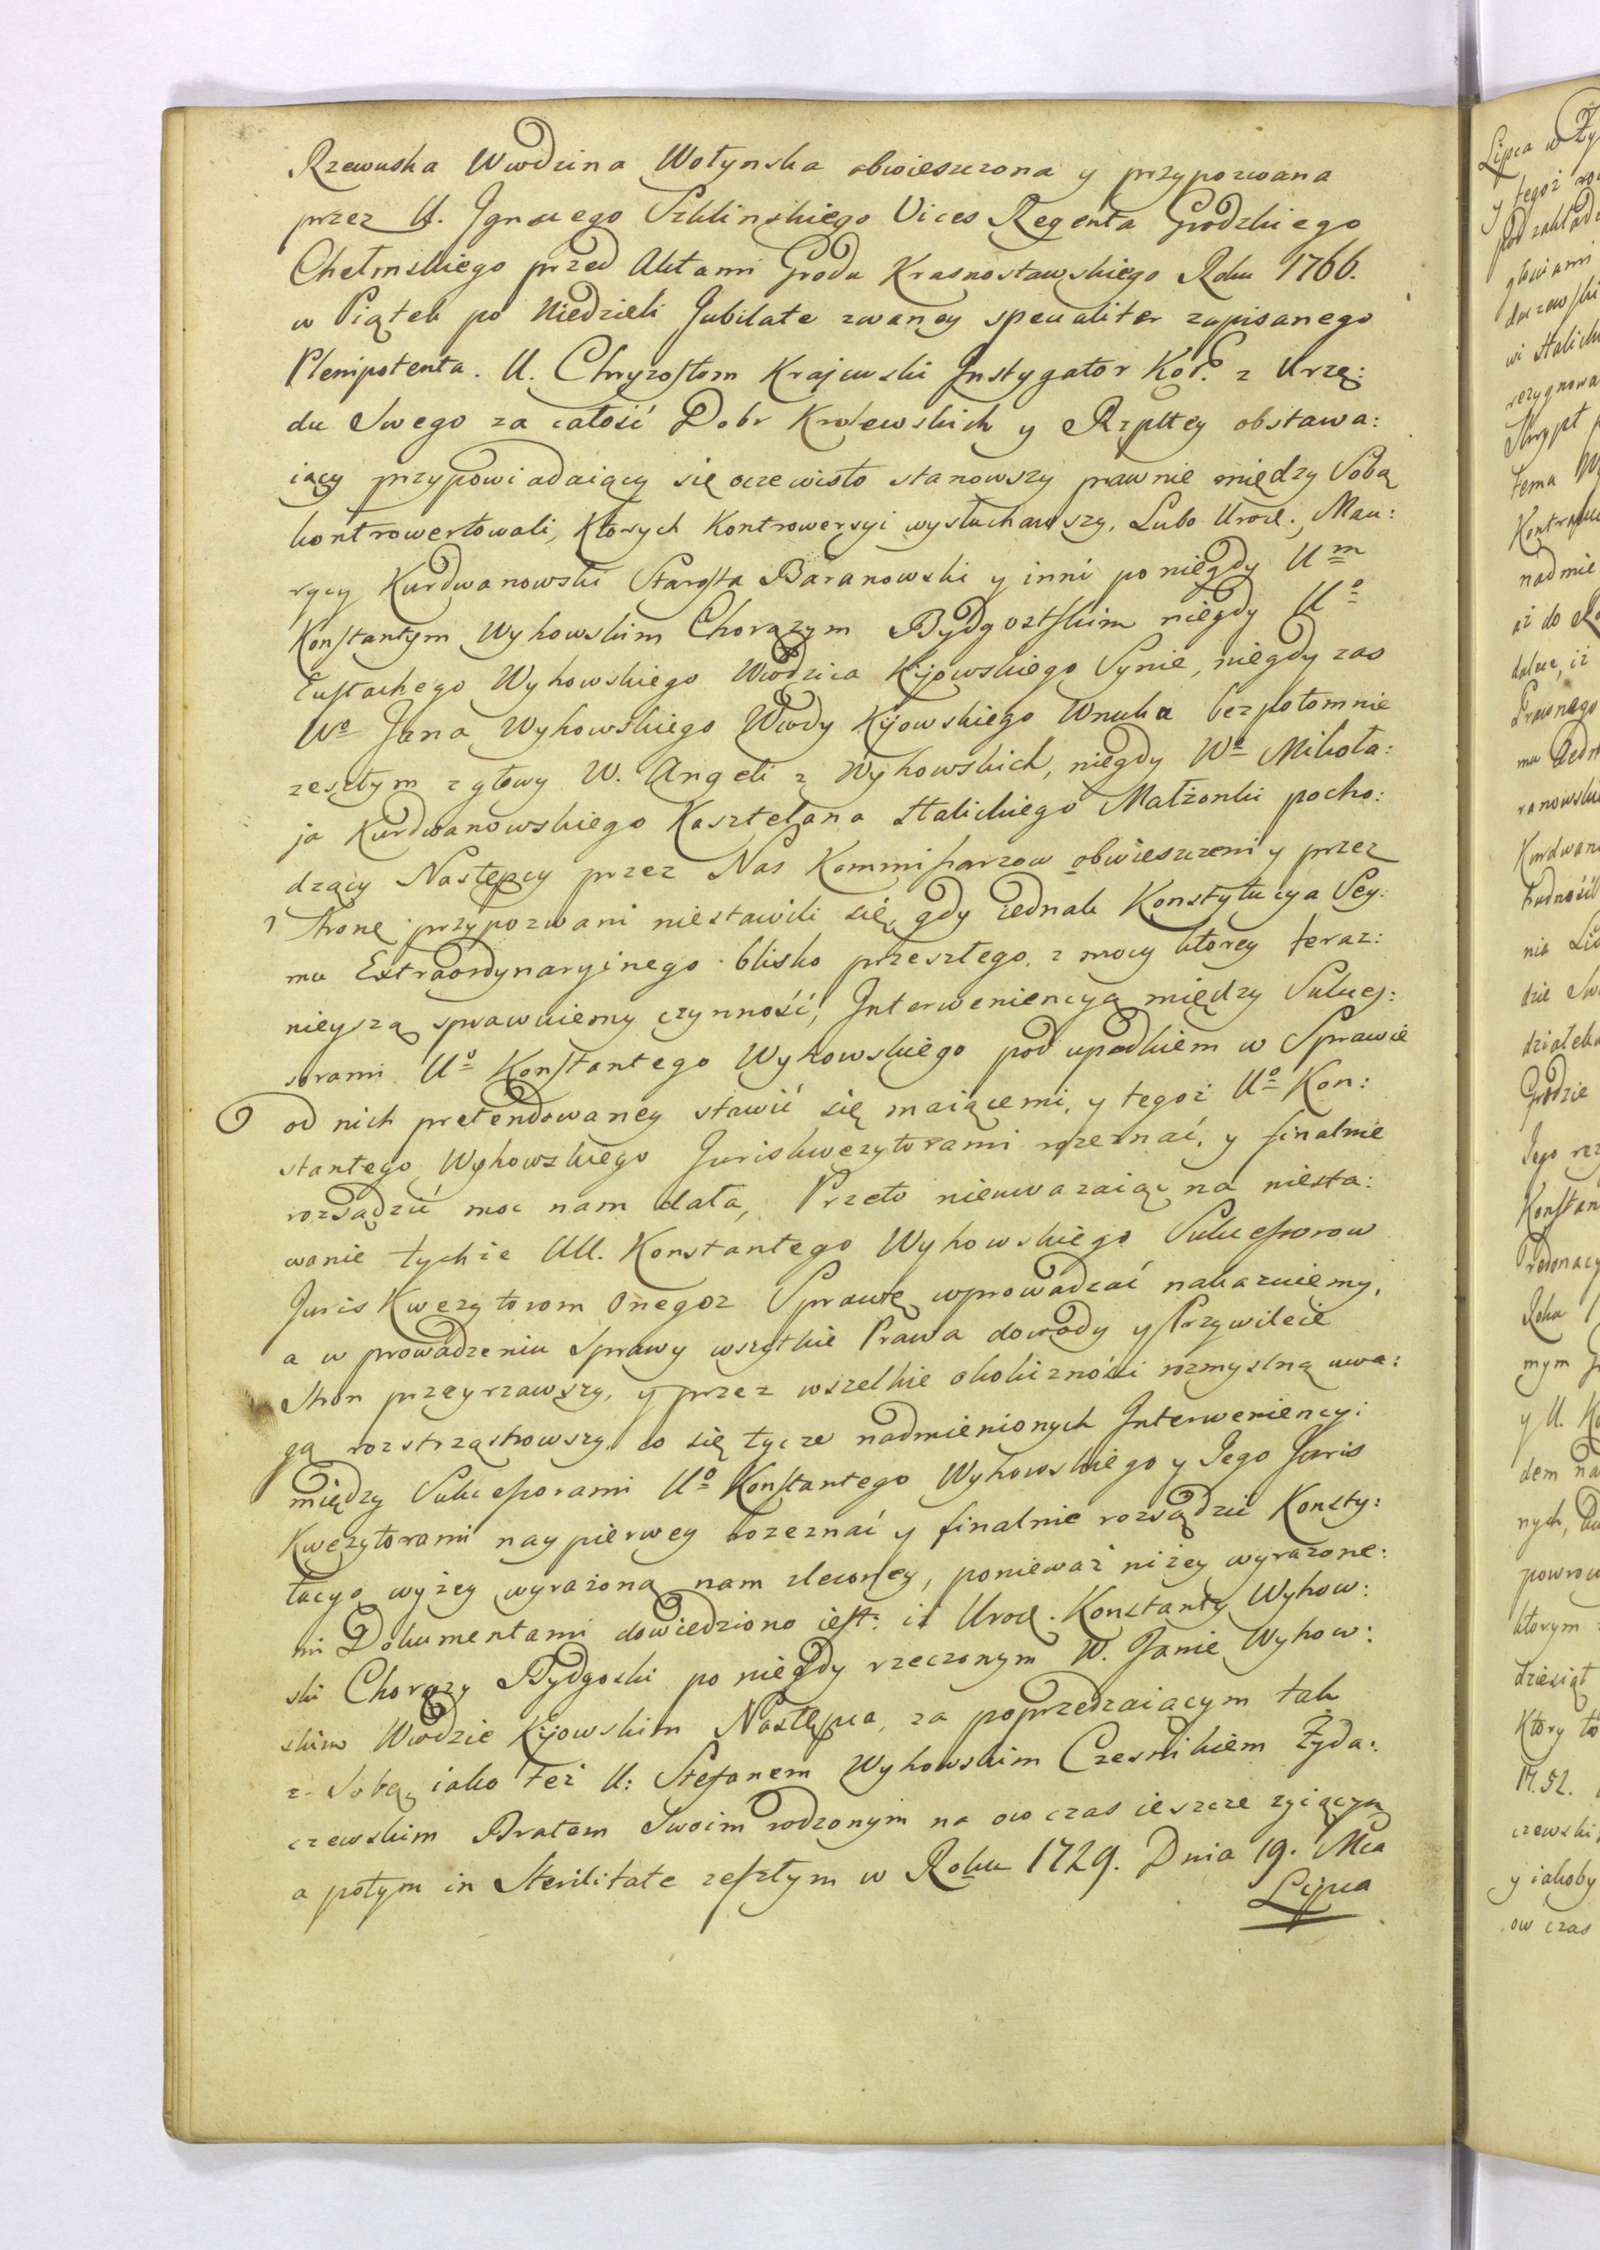 Rzewuska Wwodzina Wołynska obwieszczona y przypozwana
przez U. Ignacego Szklinskiego Vices Regenta Grodzkiego
Chełmskiego przed Aktami Grodu Krasnostawskiego Roku 1766.
w Piątek po Niedzieli Jubilate zwaney specialiter zapisanego
Plenipotenta. U. Chryzostom Krajewski Instygator Koř. z Urzę:
du Swego za całość Dobr Krolewskich y Rzpltey obstawa:
iący przypowiadaiący się oczewisto stanowszy prawnie między Sobą
kontrowertowali, Ktorych Kontrowersyi wysłuchawszy, Lubo Urodz., Mau:
rycy Kurdwanowski Starosta Baranowski y inni po niegdy Um
Konstantym Wyhowskim Chorązym Bydgostskim niegdy Uo
Eustachego Wyhowskiego Wwodzica Kijowskiego Synie, niegdy zas
Wo Jana Wyhowskiego Wwody Kijowskiego Wnuka bezpotomnie
zeszłym z głowy W. Angeli z Wyhowskich, niegdy Wo Mikoła:
ja Kurdwanowskiego Kasztelana Halickiego Małżonki pocho:
dzący Następcy przez Nas Kommissarzow obwieszczeni y przez
Stronę przypozwani niestawili się, gdy iednak Konstytucya Sey:
mu Extraordynaryjnego blisko przeszłego, z mocy ktorey teraz:
nieyszą sprawuiemy czynność, Interweniencyą między Sukces:
sorami Uo Konstantego Wyhowskiego pod upadkiem w Sprawie
od nich pretendowaney stawić się maiącemi, y tegoż Uo Kon:
stantego Wyhowskiego Juriskwezytorami rozeznać, y finalnie
rozsądzić moc nam dała, Przeto nieuwazaiąc na niesta:
wanie tychże UU. Konstantego Wyhowskiego Sukcessorow
Juris Kwezytorom Onegoz Sprawę wprowadzać nakazuiemy,
a w prowadzeniu Sprawy wszytkie Prawa dowody y Przywileie
Stron przeyrzawszy, y przez wszelkie okoliczności rozmyslną uwa:
gą rozstrząsnowszy, co się tycze nadmienionych Interweniencyi
między Sukcessorami Uo Konstantego Wyhowskiego y Jego Juris
Kwezytorami naypierwey rozeznać y finalnie rozsądzić Konsty:
tucyą wyżey wyrażoną nam zleconey, ponieważ niżey wyrażone:
mi Dokumentami dowiedziono iest: iż Urodz. Konstanty Wyhow:
ski Chorązy Bydgoski po niegdy rzeczonym W. Janie Wyhow:
skim Wwodzie Kijowskim Następca, za poprzedzaiącym tak
z Sobą iako też U: Stefanem Wyhowskim Czesnikiem Żyda:
czewskim Bratem Swoim rodzonym na ow czas ieszcze zyiącym
a potym in Sterilitate zeszłym w Roku 1729. Dnia 19. Mca
Lipca